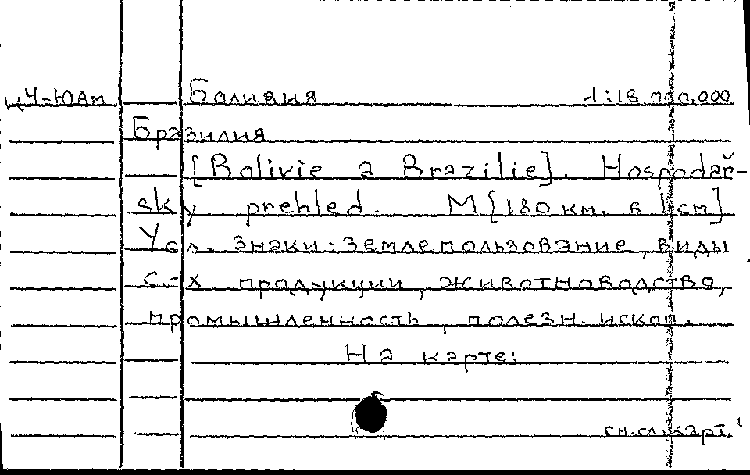 ц4-ЮАм Боливия 1:18 000,000
Бразилия
[Bolivie a Brazilie]. Hospodář-
sky prehled. М[180 км. в 1 см]
Усл. знаки: землепользование, виды
с-х продукции, животноводство,
промышленность, полезн.ископ.
На карте:
см.сл.карт.